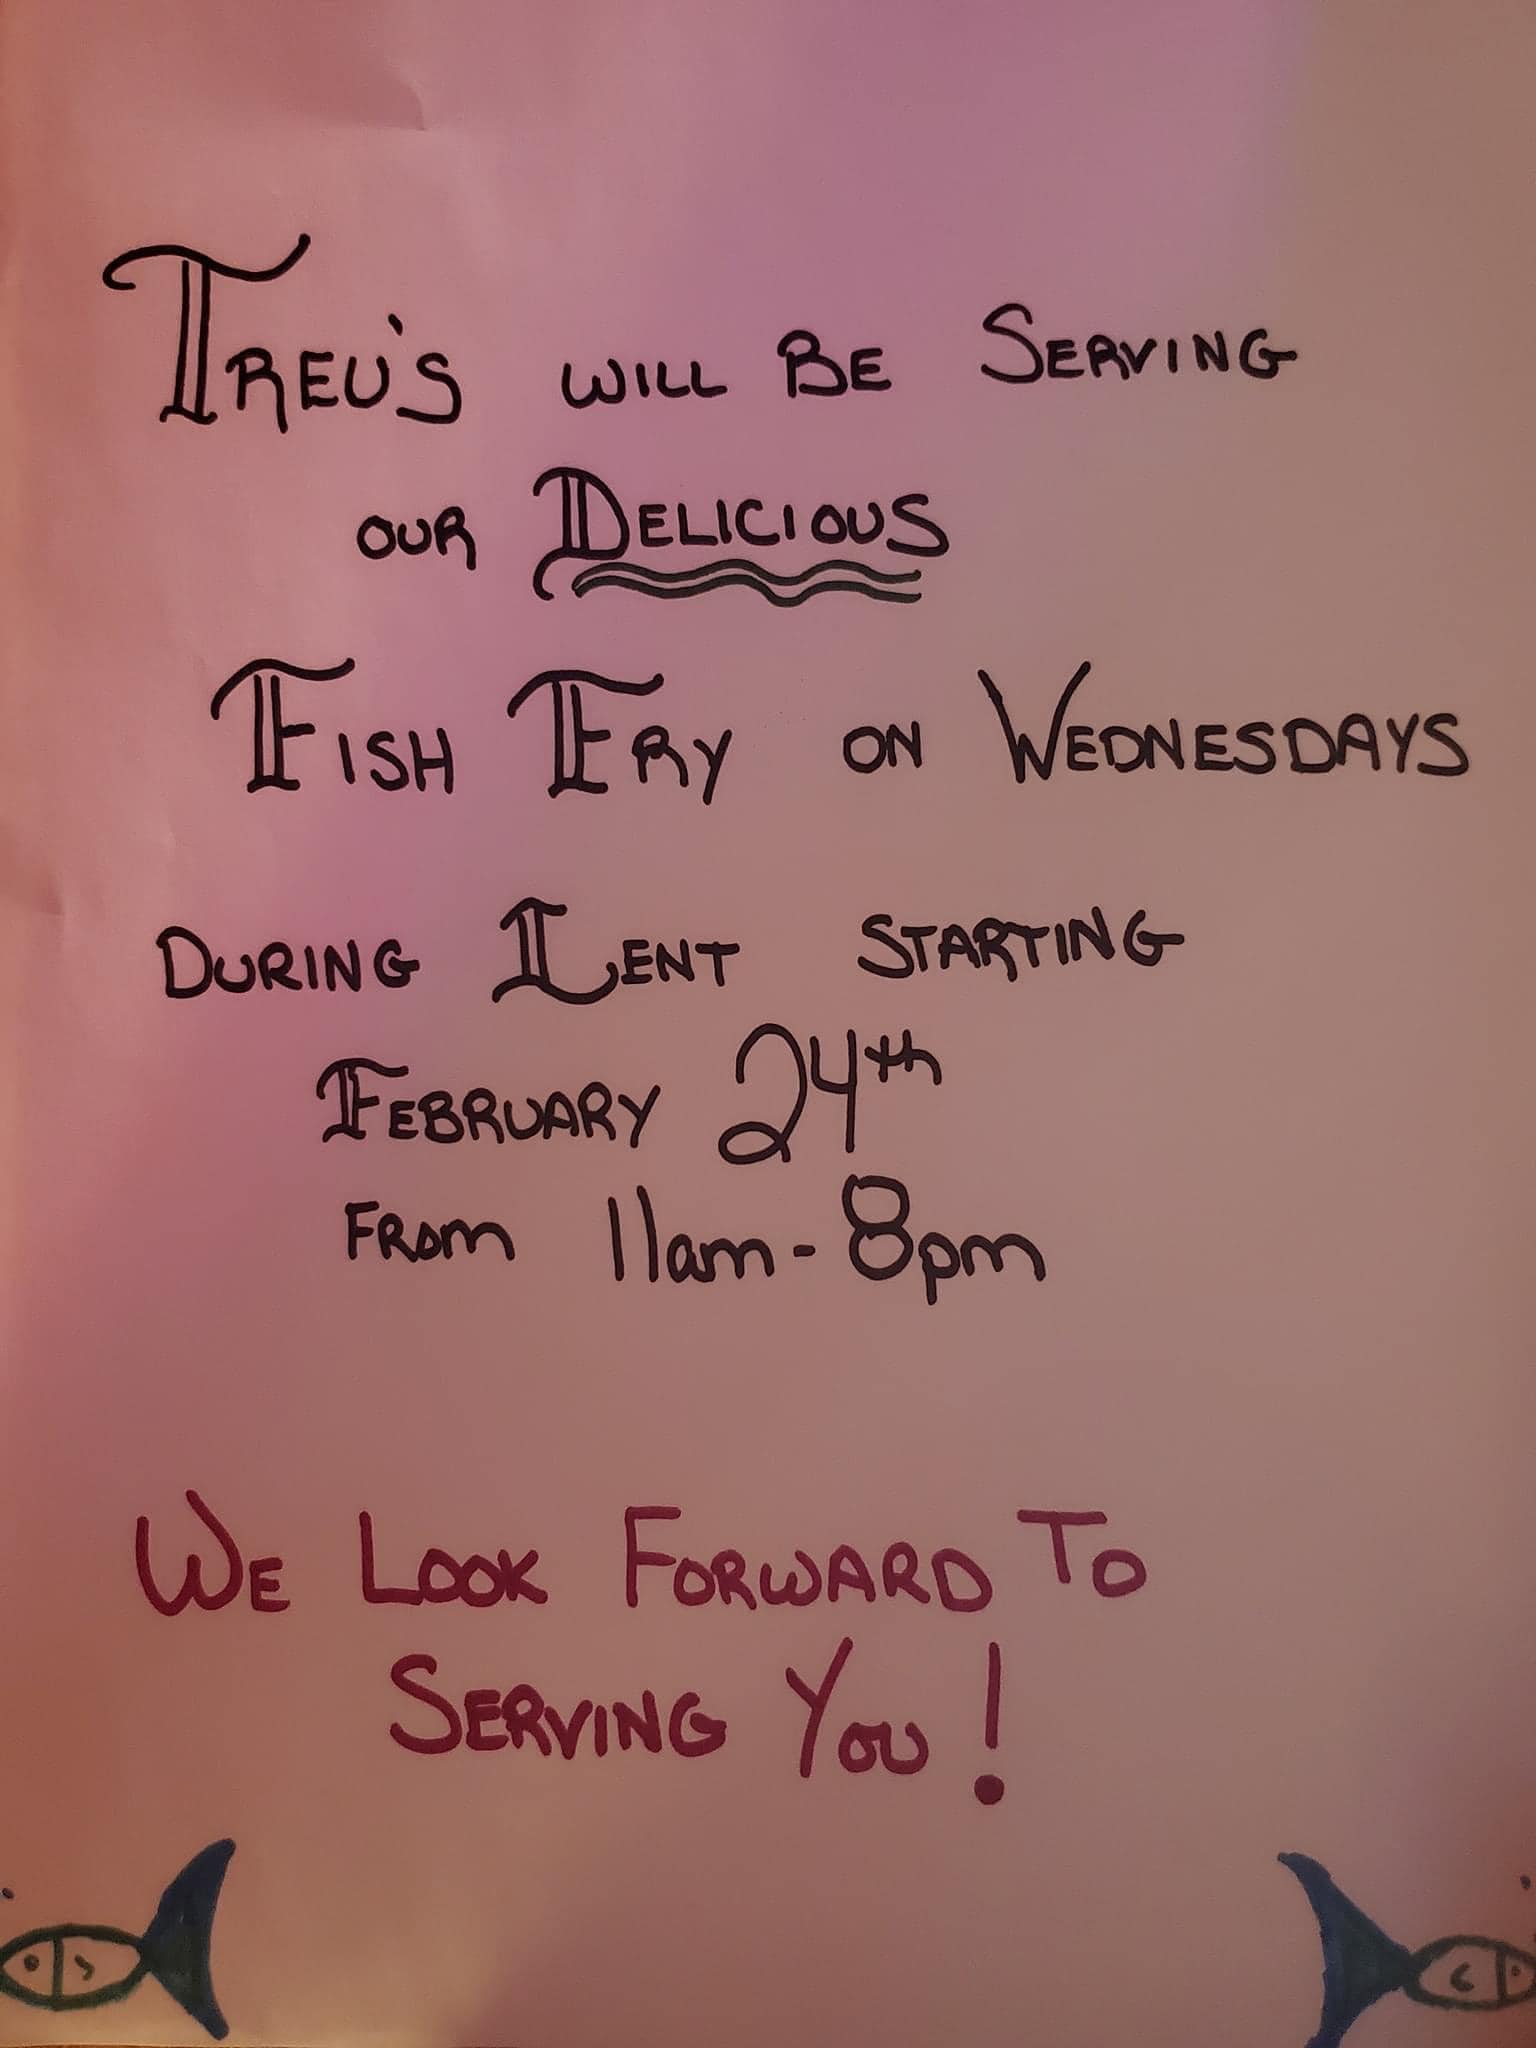 TREU'S WILL BE SERVING
OUR DELICIOUS
FISH FRY ON WEDNESDAYS
DURING LENT STARTING
FEBRUARY 24th
FROM 11am-8pm
WE LOOK FORWARD TO
SERVING YOU!